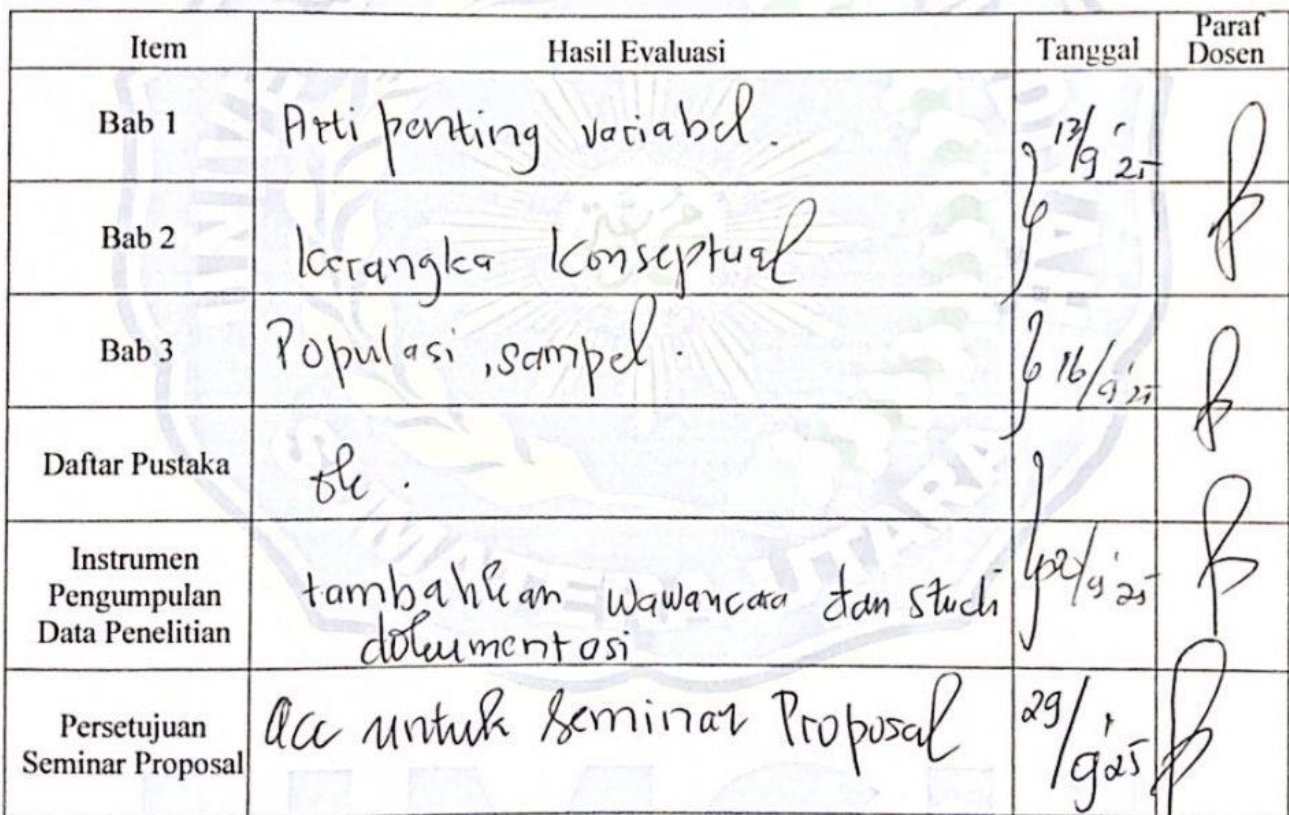 Item Hasil Evaluasi Tanggal Paraf Dosen
Bab 1 Arti penting variabel.
Bab 2 Kerangka Konseptual
Bab 3 Populasi, sampel. 16/9'25
Daftar Pustaka ok.
Instrumen
Pengumpulan
Data Penelitian
tambahkan wawancara dan studi
dokumentasi
Persetujuan
Seminar Proposal
acc untuk Seminar Proposal 29/9'25
SUMATERA UTARA